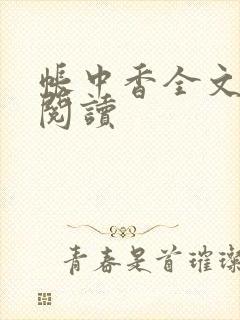 帳中香全文
閱讀
青春是首璀璨